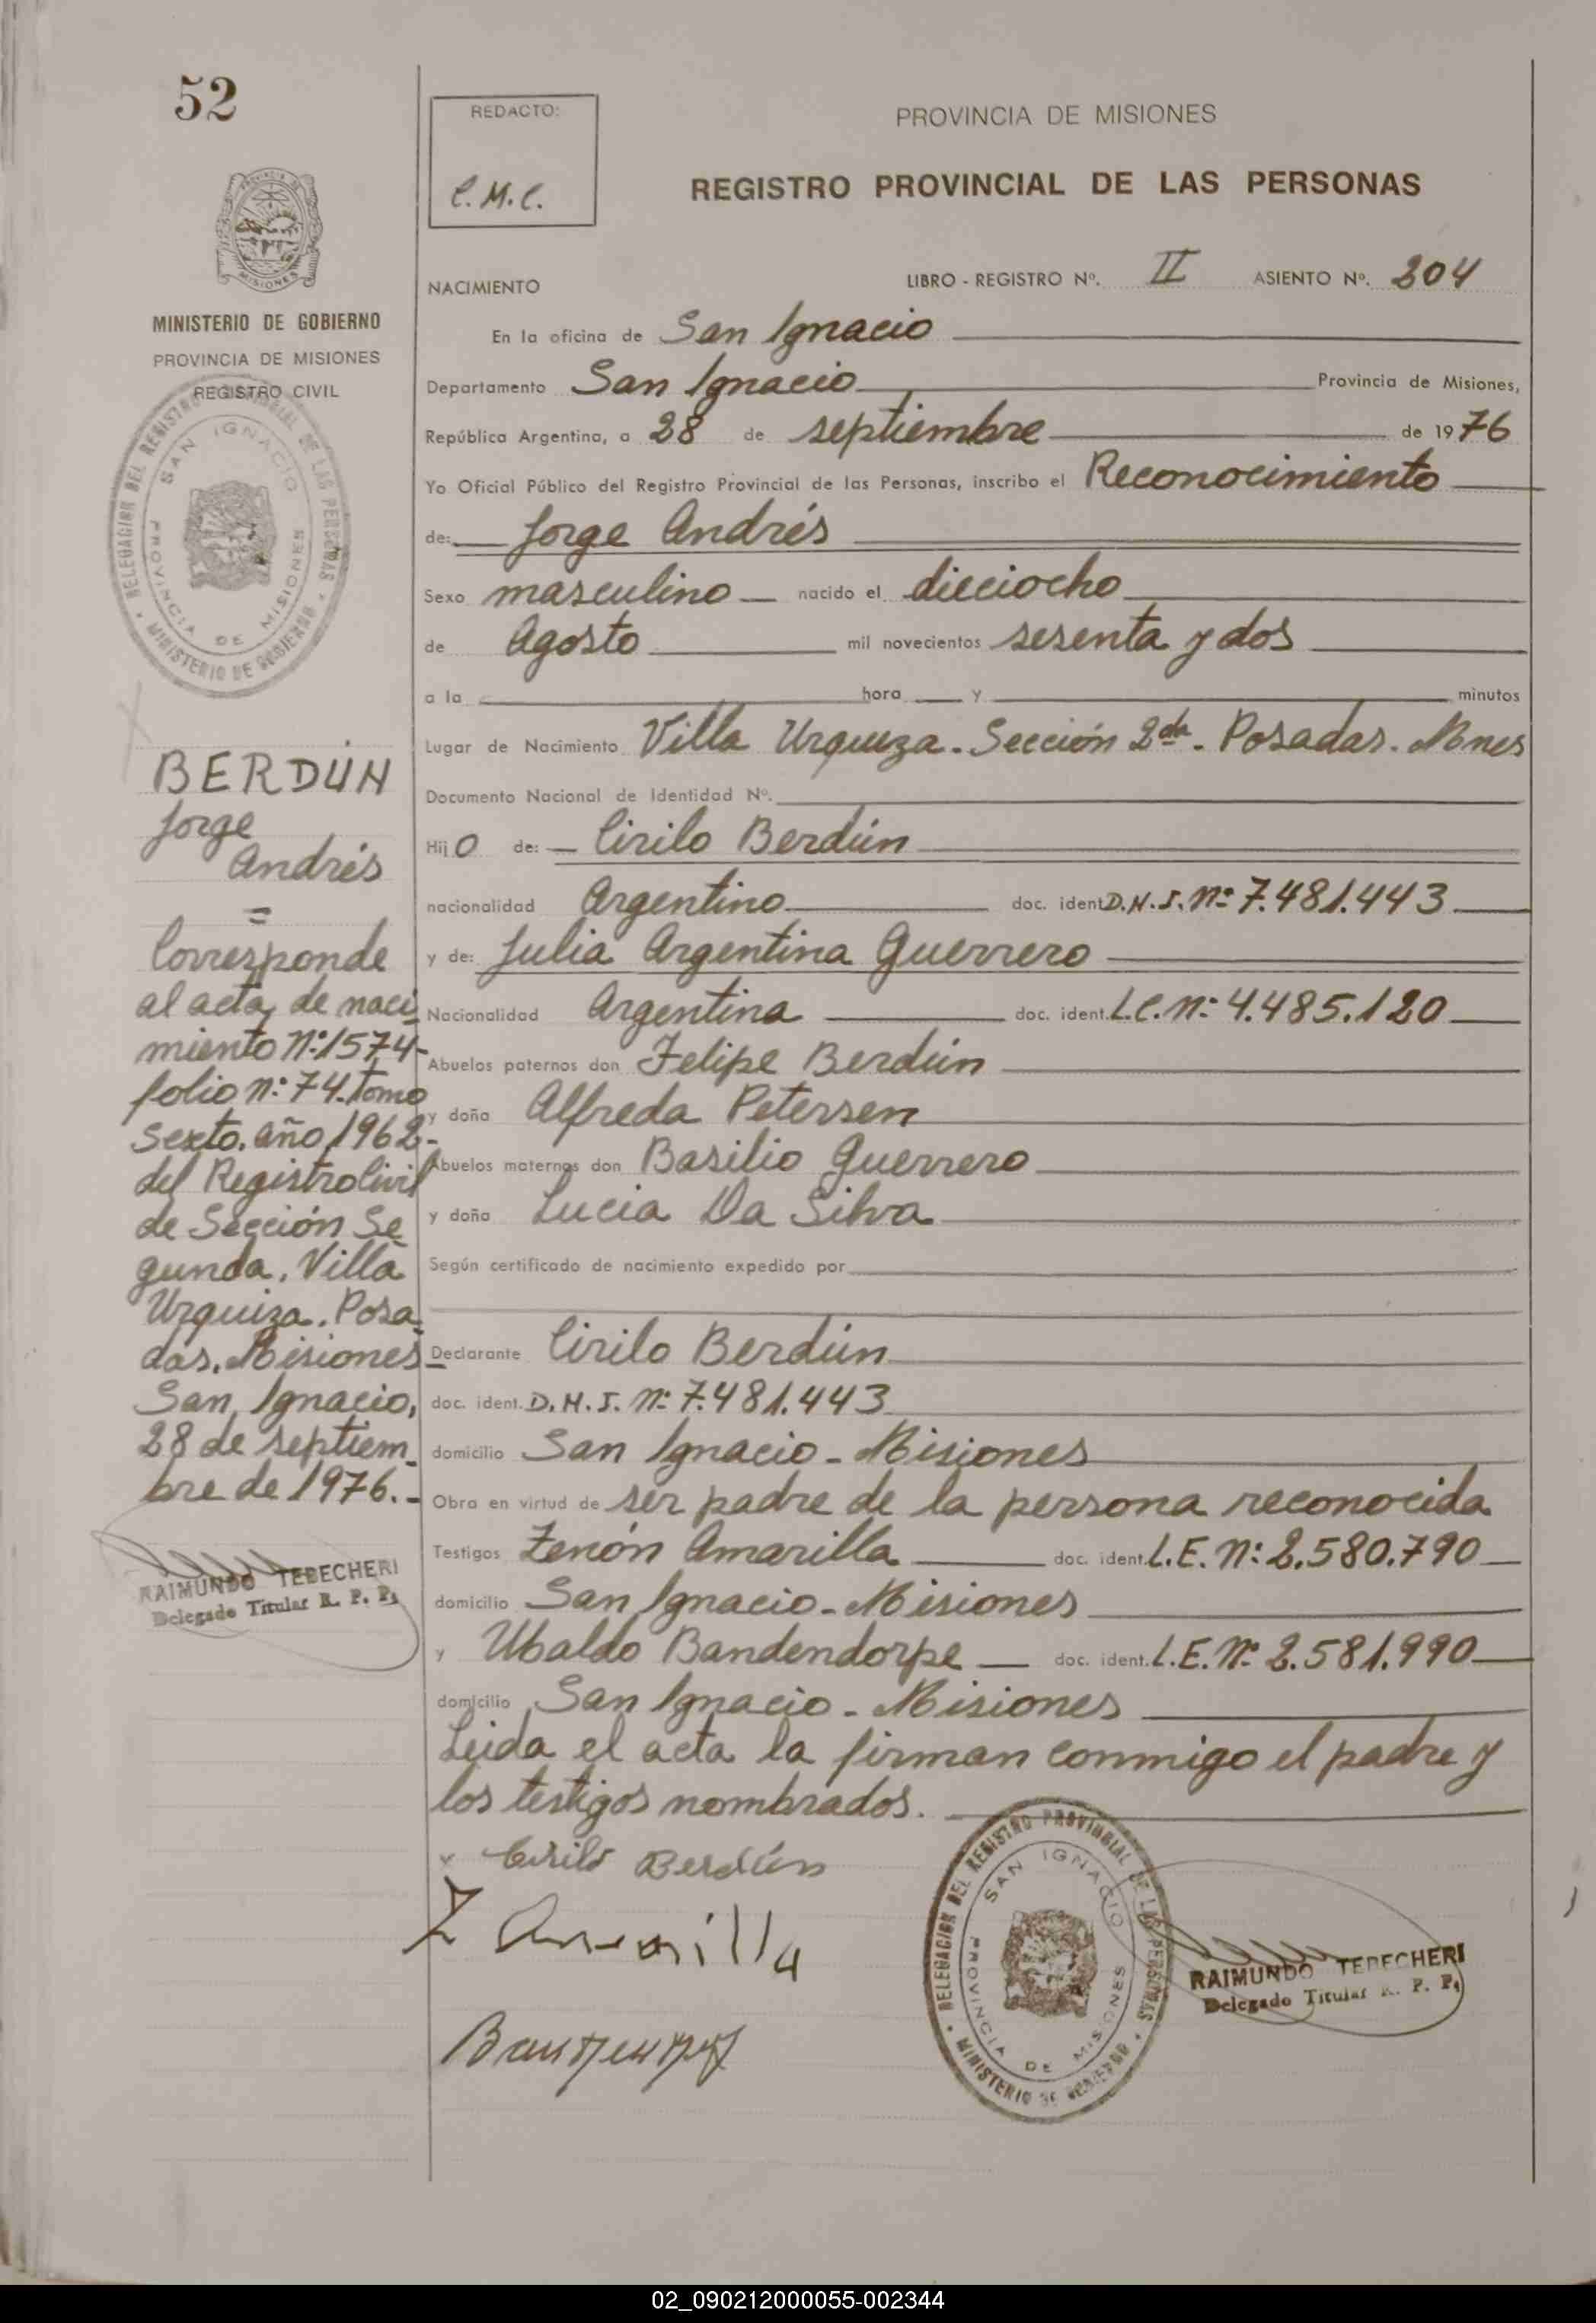 52
MINISTERIO DE GOBIERNO
PROVINCIA DE MISIONES
REGISTRO CIVIL
DELEGACION DEL REGISTRO PROVINCIAL DE LAS PERSONAS
SAN IGNACIO
PROVINCIA DE MISIONES
MINISTERIO DE GOBIERNO
BERDUN
Jorge
Andrés
=
Corresponde
al acta de naci
miento Nº: 1574-
folio nº: 74. Tomo
Sexto. año 1962-
del Registro Civil
de Sección Se
gunda. Villa
Urquiza. Posa
das. Misiones-
San Ignacio,
28 de septiem
bre de 1976.-
RAIMUNDO TEBECHERI
Delegado Titular R. P. P.
REDACTO:
C.M.C.
PROVINCIA DE MISIONES
REGISTRO PROVINCIAL DE LAS PERSONAS
NACIMIENTO LIBRO - REGISTRO Nº. II ASIENTO Nº. 204
En la oficina de San Ignacio
Departamento San Ignacio Provincia de Misiones,
República Argentina, a 28 de septiembre de 1976
Yo Oficial Público del Registro Provincial de las Personas, inscribo el Reconocimiento
de: Jorge Andrés
Sexo masculino nacido el dieciocho
de Agosto mil novecientos sesenta y dos
a la hora y minutos
Lugar de Nacimiento Villa Urquiza. Sección 2da. Posadas. Mnes
Documento Nacional de Identidad Nº.
Hijo de: Cirilo Berdún
nacionalidad Argentino doc. ident D.N.I. Nº 7.481.443
y de: Julia Argentina Guerrero
Nacionalidad Argentina doc. ident. L.C. Nº: 4.485.120
Abuelos paternos don Felipe Berdún
y doña Alfreda Petersen
Abuelos maternos don Basilio Guerrero
y doña Lucia Da Silva
Según certificado de nacimiento expedido por
Declarante Cirilo Berdún
doc. ident. D.N.I. Nº 7.481.443
domicilio San Ignacio - Misiones
Obra en virtud de ser padre de la persona reconocida
Testigos Zenón Amarilla doc. ident. L.E. Nº: 2.580.790
domicilio San Ignacio - Misiones
y Ubaldo Bandendorpe doc. ident. L.E. Nº 2.581.990
domicilio San Ignacio - Misiones
Leida el acta la firman conmigo el padre y
los testigos nombrados.
x Cirilo Berdún
Z Amarilla
DELEGACION DEL REGISTRO PROVINCIAL DE LAS PERSONAS
SAN IGNACIO
PROVINCIA DE MISIONES
MINISTERIO DE GOBIERNO
RAIMUNDO TEBECHERI
Delegado Titular R. P. P.
02_090212000055-002344